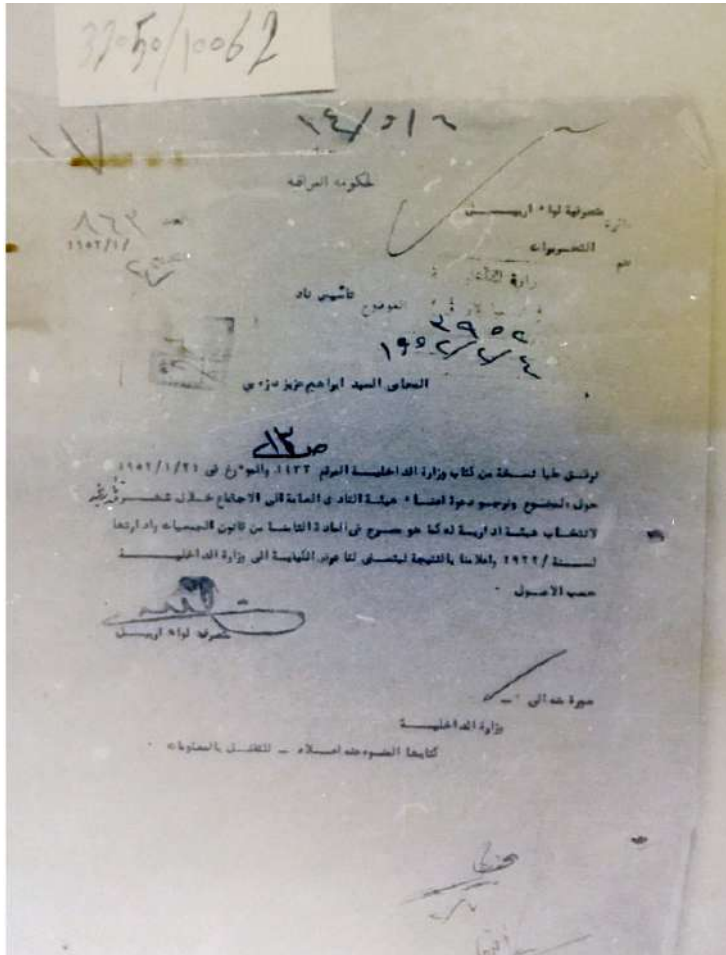 32050/10062
١٧
الحكومة العراقية
متصرفية لواء اربيــــل
التحريرات
٨٦٣
/١/١٩٥٢
الموضوع تأسيس ناد
٣٩٥٢
١٩٥٢/٢/٤
المحامي السيد ابراهيم عزيز دزه يي
نرفق طيا نسخة من كتاب وزارة الداخليـة المرقم ١٤٣٢ والمؤرخ في ١٩٥٢/١/٢١
حول الموضوع ونرجو دعوة اعضاء هيئة النادي العامة الى الاجتماع خلال شهر
لانتخاب هيئة ادارية له كما هو مصرح في المادة الثامنة من قانون الجمعيات وادارتها
لسـنة /١٩٢٢ واعلامنا بالنتيجة ليتسنى لنا عرض الكيفية الى وزارة الداخليـــة
حسب الاصـول .
متصرف لواء اربيـــل
صورة منه الى :ـ
وزارة الداخليـــــة
كتابها المنوه عنه اعـلاه ــ للتفضـل بالمعلومات